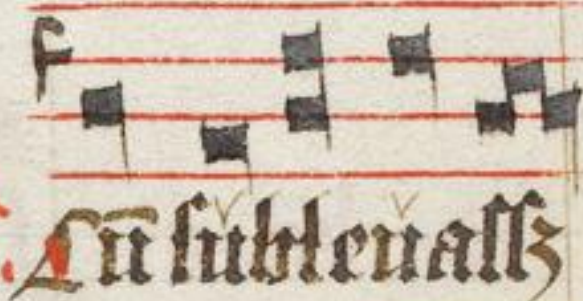 Cū subleuassꝫ